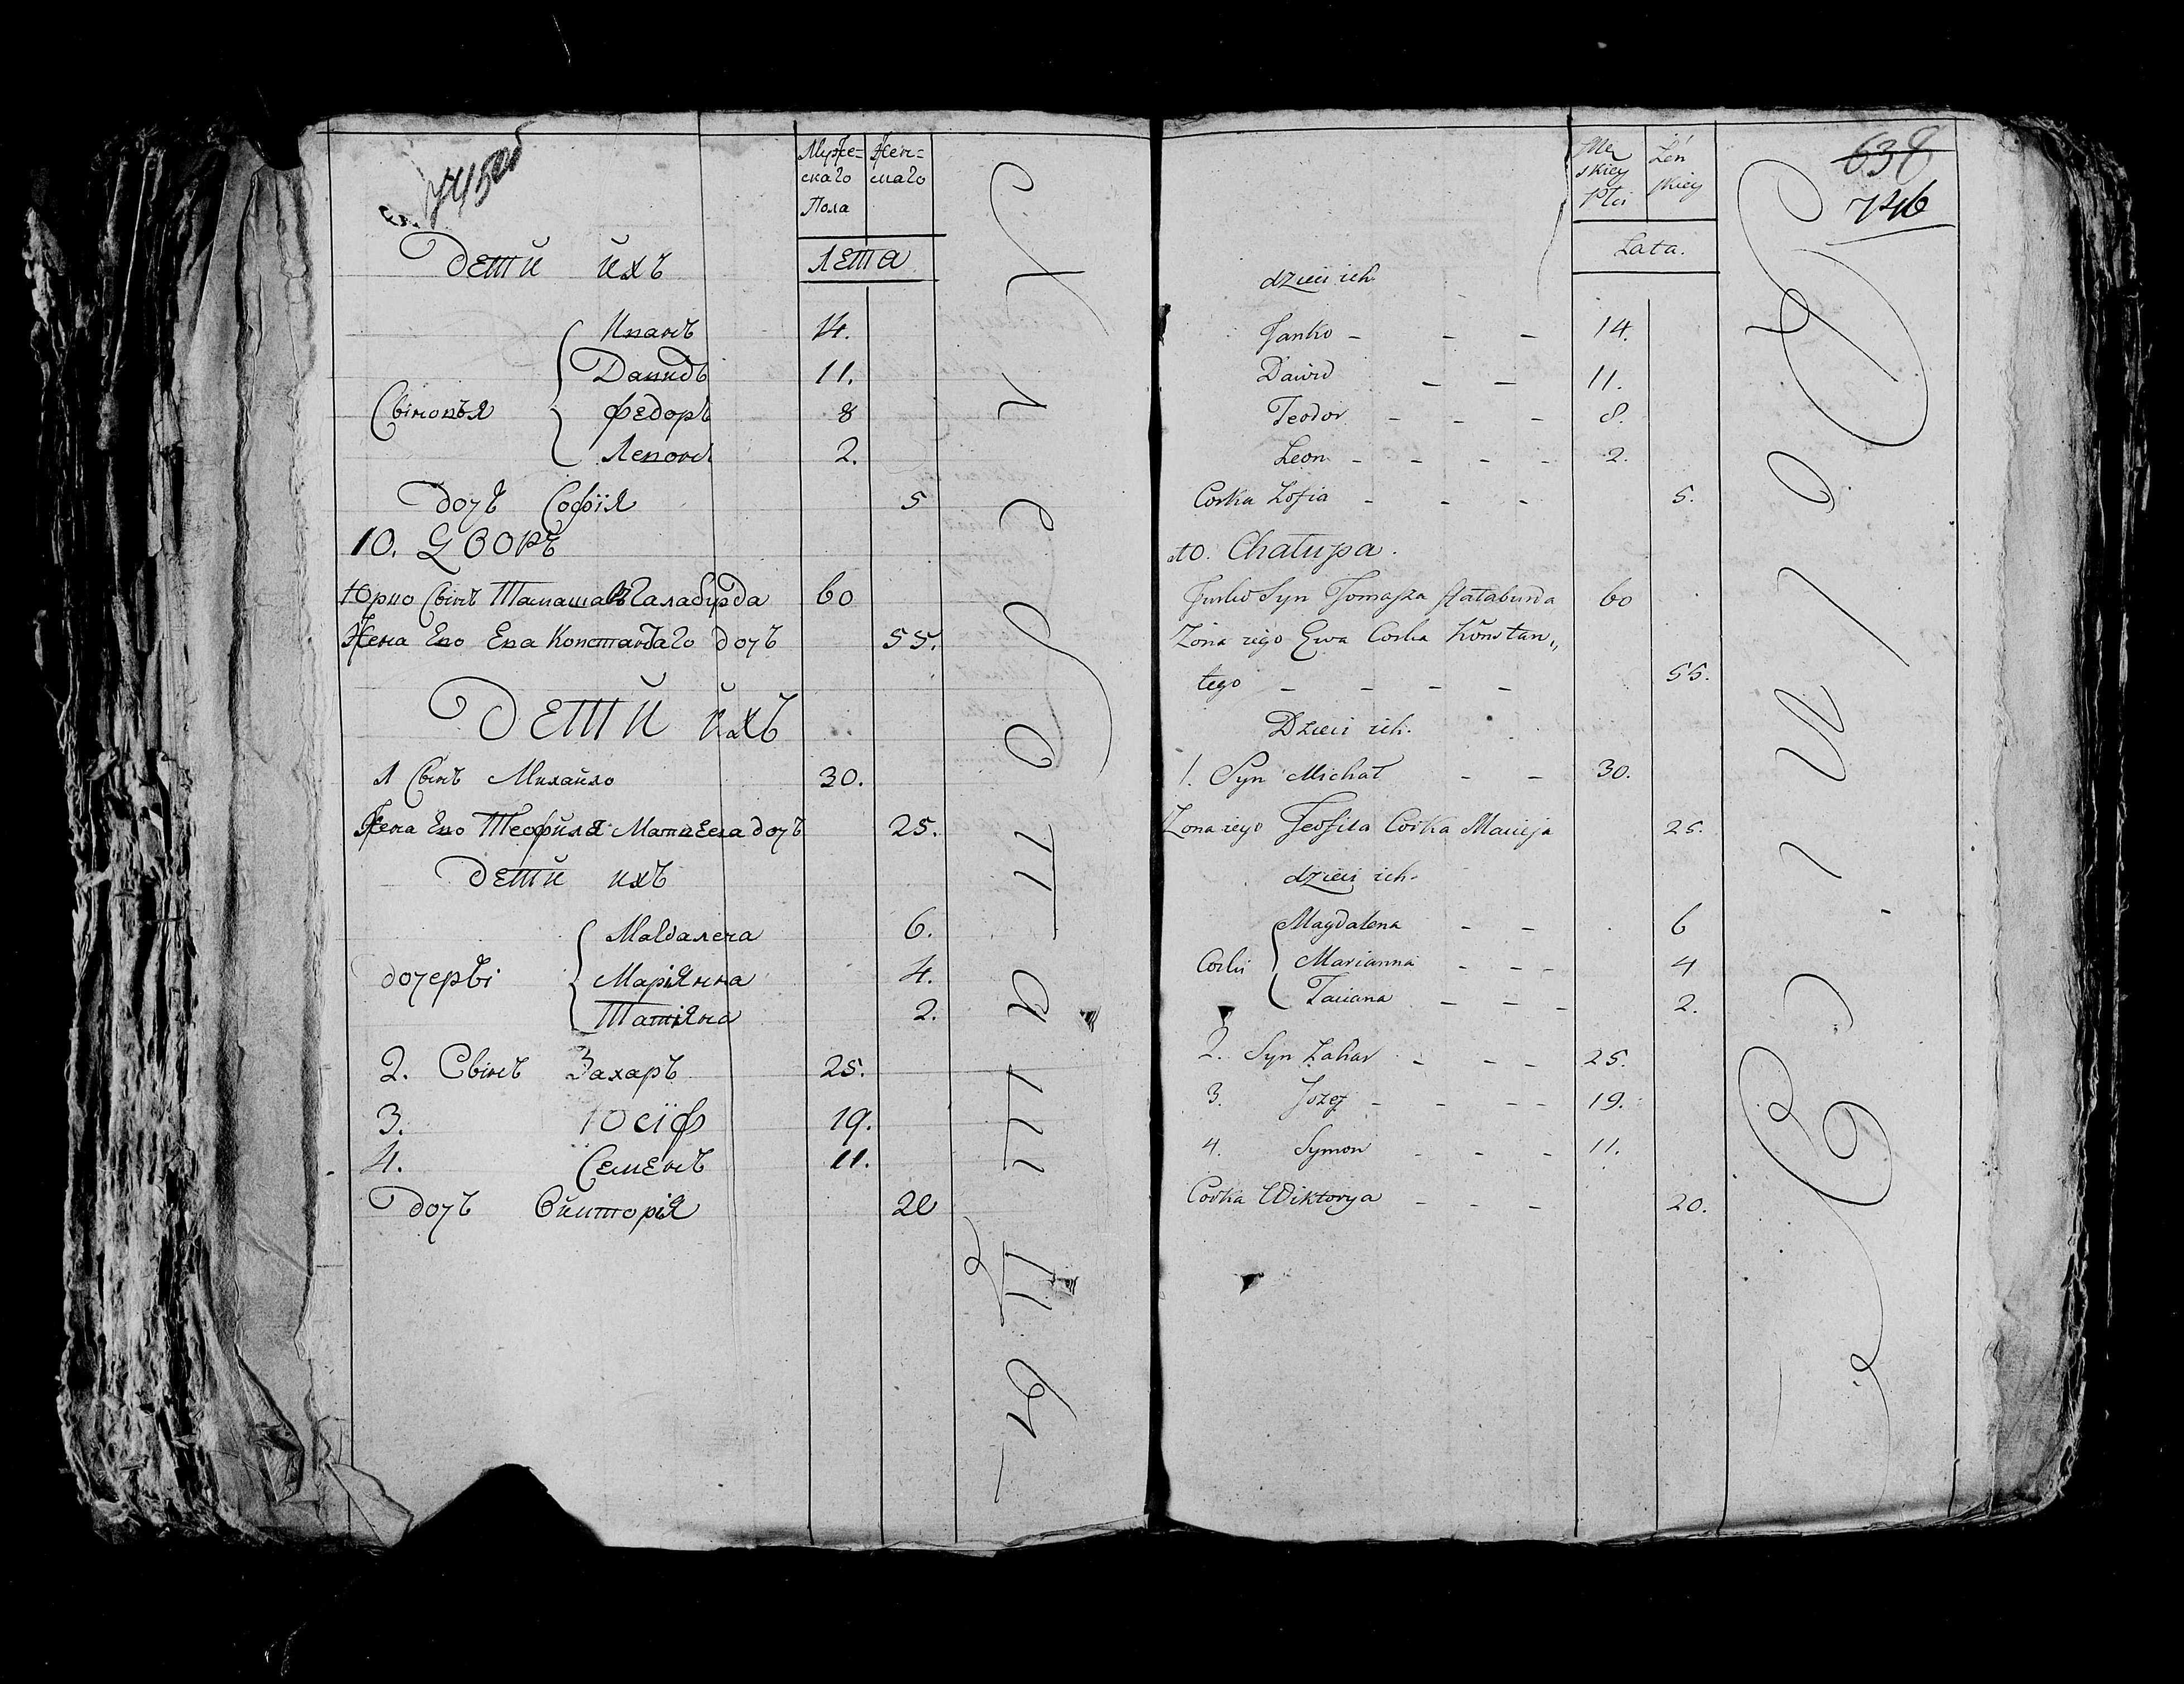 Муже-
скаго
Пола
Женс-
каго
ЛЕТА
ДЕТИ ИХЪ
Иванъ 14.
Давидъ 11.
Сыновья Федоръ 8
Левонъ 2.
дочь Софія 5
10. ДВОРЪ
Юрко Сынъ Тамашавъ Галабурда 60
Жена Его Ева Константаго дочь 55.
ДЕТИ ИХЪ
1 Сынъ Михайло 30.
Жена Его Теофиля Матвеева дочь 25.
ДЕТИ ИХЪ
Магдалена 6.
дочеры Маріянна 4.
Татіяна 2.
2. Сынъ Захаръ 25.
3. Юсіф 19.
4. Семенъ 11.
Дочь Викторія 20
638
746
Mę
skiey
Płci
Żeń
skiey
Lata.
dzieci ich
Janko - - - 14.
Dawid - - 11.
Teodor - - - 8.
Leon - - - - 2.
Corka Zofia - - - 5.
10. Chałupa.
Jurko Syn Tomasza Hałaburda 60
Zona iego Ewa Corka Konstan„
tego - - - - 55.
Dzieci ich.
1. Syn Michał - - 30.
Zona iego Teofila Corka Macieja 25.
dzieci ich.
Magdalena - - 6
Corki Marianna - - - 4
Taciana - - - 2.
2. Syn Zahar - - - 25.
3. Jozef - - - - 19.
4. Symon - - - 11.
Corka Wiktorya - - - 20.